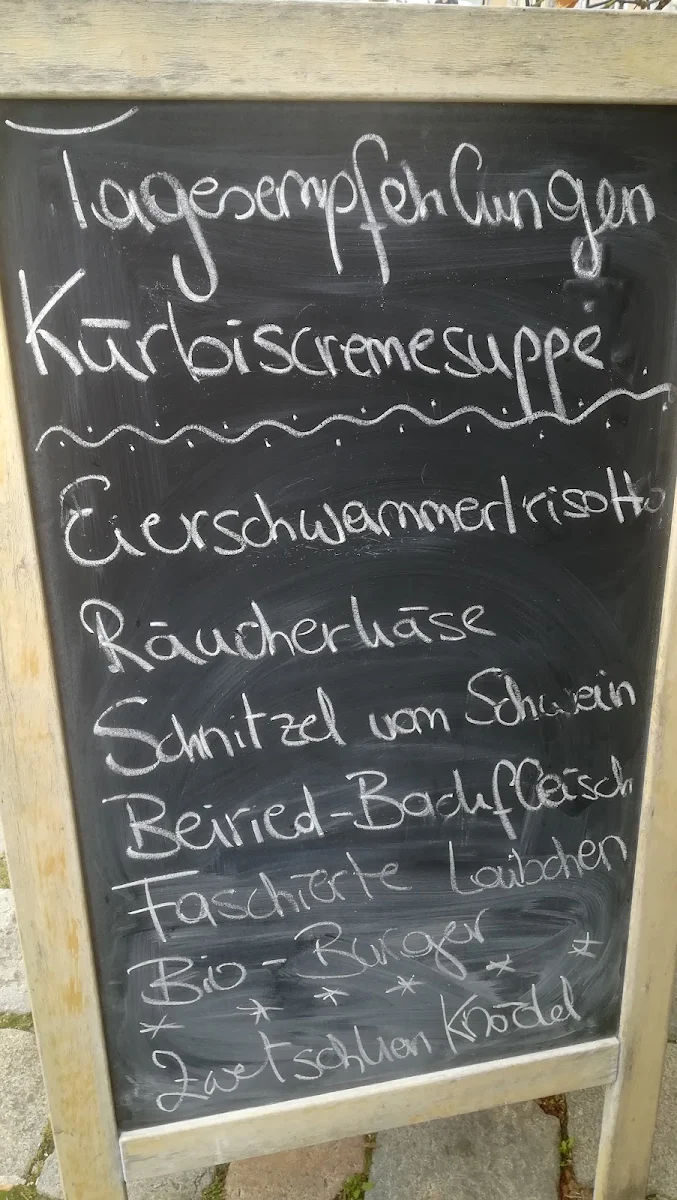 Tagesempfehlungen
Kürbiscremesuppe
Eierschwammerlrisotto
Räucherkäse
Schnitzel vom Schwein
Beiried-Backfleisch
Faschierte Laibchen
Bio-Burger
Zwetschken Knödel